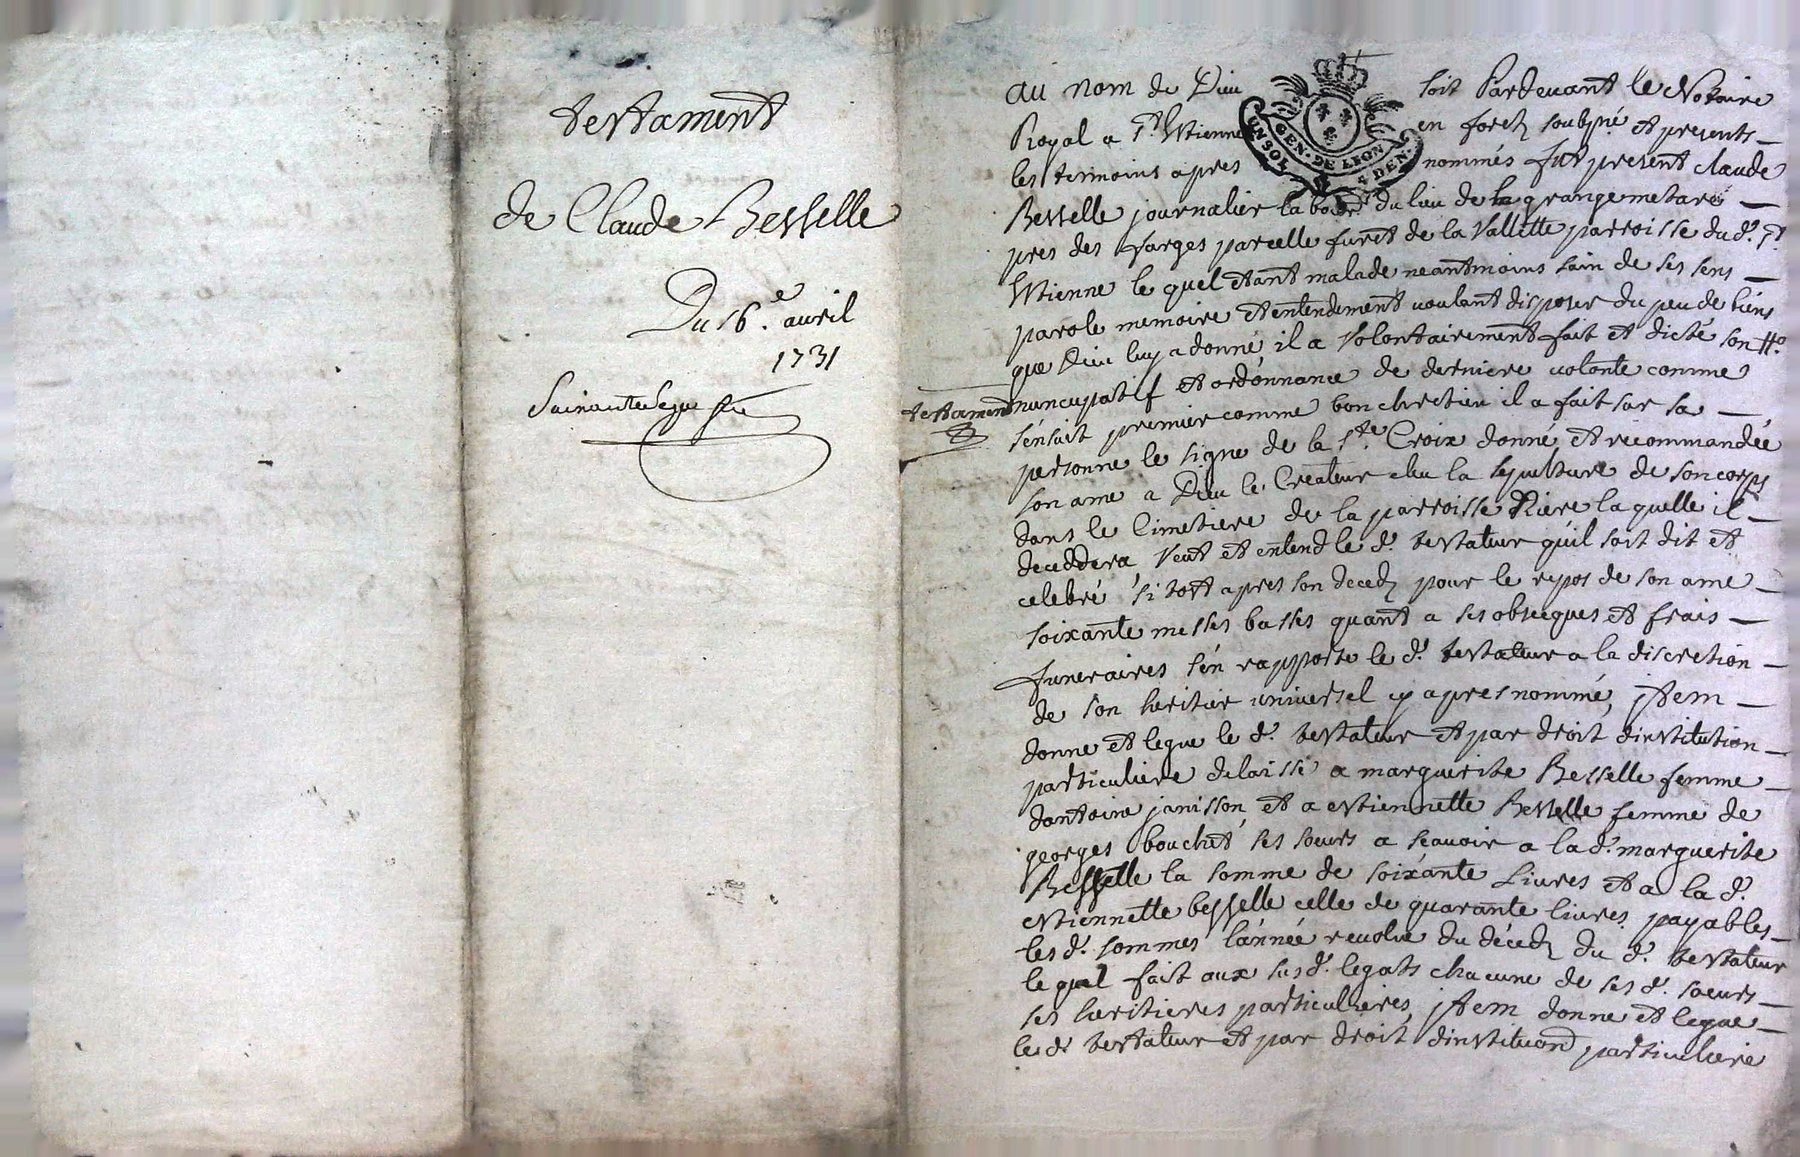 testament
de Claude Besselle
Du 16.e avril
1731
au nom de Dieu soit Pardevant le Notaire
Royal a St. Estienne en forez soubsné et presents
les temoins apres nommés fut present claude
Besselle journalier du lieu de la grange metare
pres des forges parcelle furet de la Vallette parroisse dud. St.
Estienne le quel etant malade neantmoins sain de ses sens
parole memoire et entendement voulant disposer du peu de biens
que Dieu luy a donné, il a volontairement fait et dicté son tt.
testament
nuncupatif et ordonnance de derniere volonte comme
sénsuit premier comme bon chretien il a fait sur sa
personne le signe de la Ste. Croix donné et recommandée
son ame a Dieu le Createur eleu la sepulture de son corps
dans le Cimetiere de la parroisse Riere la quelle il
deceddera, Veut et entend le d. testateur quil soit dit et
celebré si tost apres son deced pour le repos de son ame
soixante messes basses quant a ses obseques et frais
funeraires sén rapporte le d. testateur a la discretion
de son heritier universel cy apres nommé, jtem
donne et legue le d. testateur et par droit dinstitution
particuliere delaisse a marguerite Besselle femme
dantoine janisson, et a estiennette Besselle femme de
georges bouchet, ses soeurs a scavoir a la d. marguerite
Besselle la somme de soixante Livres et a la d.
estiennette besselle celle de quarante livres payables
les d. sommes lánnée revolue du déced du d. testateur
le quel fait aux susd. legats chacune de ses d. soeurs
ses heritieres particulieres, jtem donne et legue
le d. testateur et par droit dinstitution particuliere
UN SOL GEN. DE LION 4 DEN.